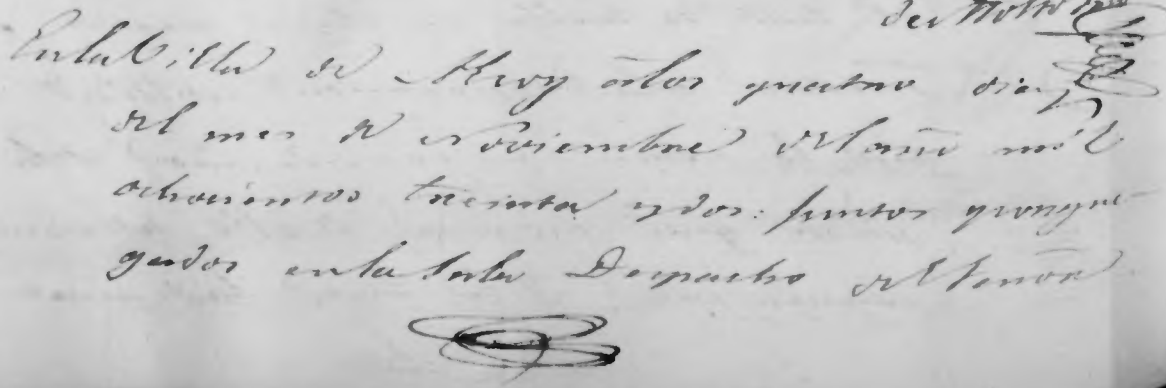 En la Villa de Alcoy á los quatro dias
del mes de Noviembre del año mil
ochocientos treinta y dos: Juntos y congre-
gados en la Sala Despacho del Señor